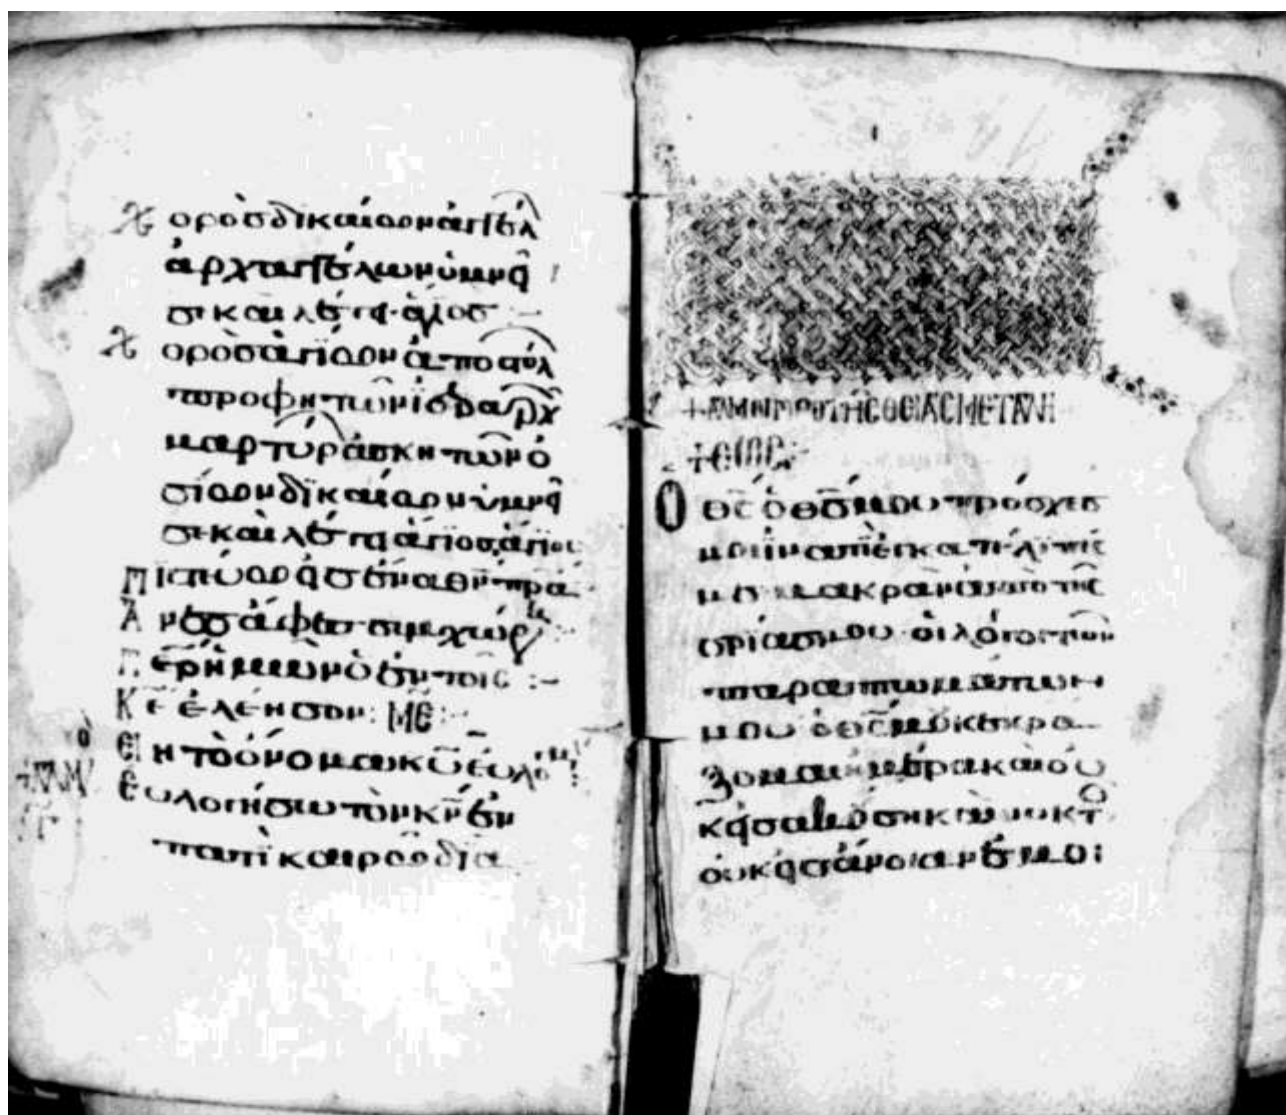 Χορὸς δικαίων ἀγγέλ
ἀρχαγγέλων ὑμνεῖ
σε καὶ λέγει· ἅγιος :-
Χορὸς ἁγίων ἀποστόλ
προφητῶν ἱεραρχ
μαρτύρ ἀσκητῶν ὁ
σίων δικαίων ὑμνεῖ
σε καὶ λέγει ἅγιος ἅγιος
Πιστεύω εἰς ἕνα θν πρα
Ἄνες ἄφες συγχώρ :-
Περ ἡμῶν ὁ ἐν τοῖς :-
Κε ἐλέησον : Μ :-
Εἴη τὸ ὄνομα κυ εὐλο
Εὐλογήσω τὸν κν ἐν
παντὶ καιρῷ διὰ
ΤΗΣ ΘΕΙΑΣ ΜΕΤΑΛΗ
Ὁ θς ὁ θς μου πρόσχες
μοι ἵνα τί ἐγκατέλιπές
με μακρὰν ἀπὸ τῆς
σρίας μου οἱ λόγοι τῶν
παραπτωμάτων
μου ὁ θς μου κεκρά
ξομαι ἡμέρας καὶ οὐ
κ εἰσακούσῃ καὶ νυκτ
οὐκ εἰς ἄνοιαν ἐμοί